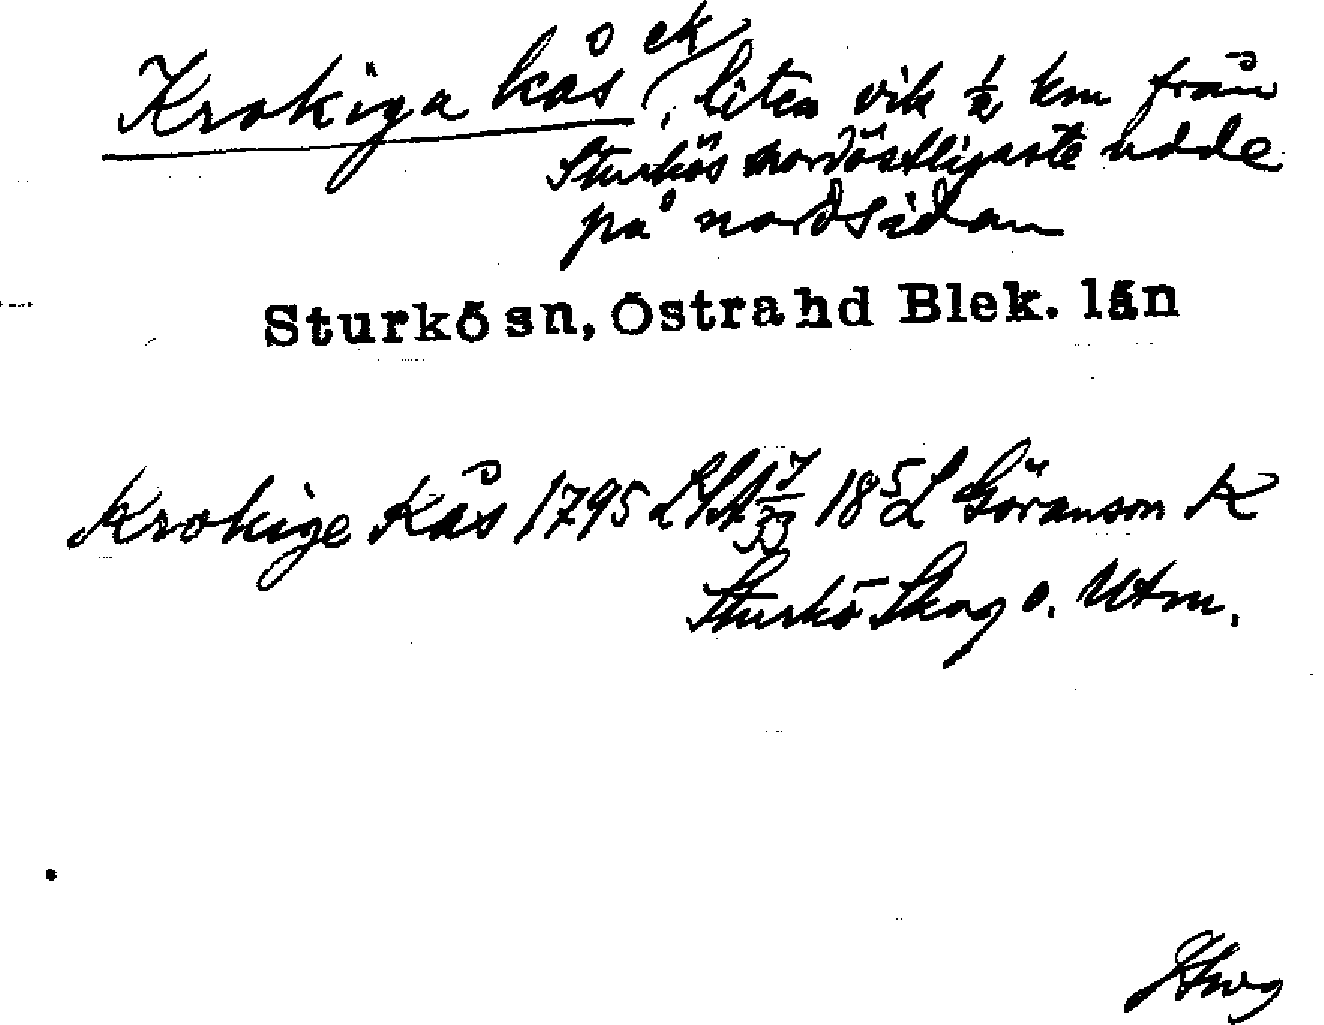 Krokiga kås ek, liten vik ½ km från
Sturkös nordöstligaste udde
på nordsidan
Sturkö sn, Östra hd Blek. län
Krokige Kås 1795 LSA 17/33 18 5/L Göranson K
Sturkö Skog o. Utm.